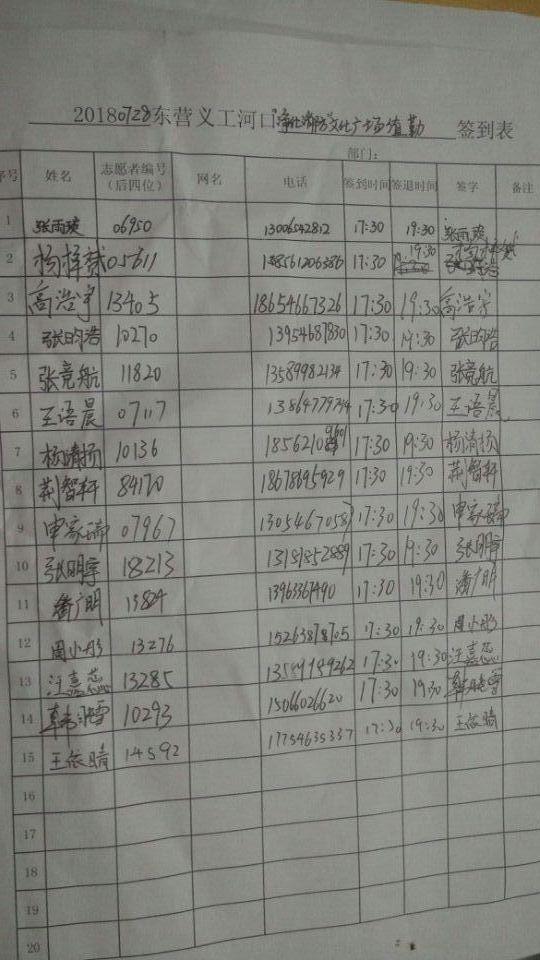 20180728东营义工河口 文化广场值勤 签到表
部门:
序号 姓名 志愿者编号(后四位) 网名 电话 签到时间 签退时间 签字 备注
1 张雨 06950 13006542812 17:30 19:30 张雨
2 杨梓 05611 17:30 19:30
3 高浩宇 13405 18654667326 17:30 19:30 高浩宇
4 张昀浩 10270 13954687830 17:30 19:30 张昀浩
5 张竞航 11820 13589982134 17:30 19:30 张竞航
6 王语晨 07117 17:30 19:30 王语晨
7 杨清扬 10136 17:30 19:30 杨清扬
8 荆智轩 84170 18678695929 17:30 19:30 荆智轩
9 申家瑞 07967 13054670587 17:30 19:30 申家瑞
10 张明宇 18213 17:30 19:30 张明宇
11 潘广明 13824 13963367490 17:30 19:30 潘广明
12 周小彤 13276 15263878705 17:30 19:30 周小彤
13 汪嘉蕊 13285 13589989262 17:30 19:30 汪嘉蕊
14 10293 15066026620 17:30 19:30
15 王依晴 14592 17754635337 17:30 19:30 王依晴
16
17
18
19
20